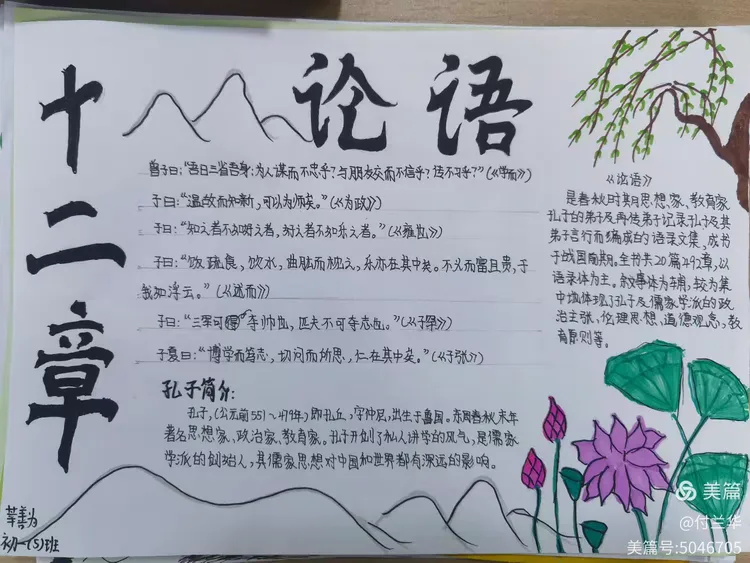 论语
十二章
曾子曰:“吾日三省吾身:为人谋而不忠乎?与朋友交而不信乎?传不习乎?”(《学而》)
子曰:“温故而知新,可以为师矣。”(《为政》)
子曰:“知之者不如好之者,好之者不如乐之者。”(《雍也》)
子曰:“饭疏食,饮水,曲肱而枕之,乐亦在其中矣。不义而富且贵,于
我如浮云。”(《述而》)
子曰:“三军可夺帅也,匹夫不可夺志也。”(《子罕》)
子夏曰:“博学而笃志,切问而近思,仁在其中矣。”(《子张》)
孔子简介:
孔子,(公元前551~479年)即孔丘,字仲尼,出生于鲁国。东周春秋末年
著名思想家、政治家、教育家。孔子开创了私人讲学的风气,是儒家
学派的创始人,其儒家思想对中国和世界都有深远的影响。
《论语》
是春秋时期思想家、教育家
孔子的弟子及再传弟子记录孔子及其
弟子言行而编成的语录文集,成书
于战国前期。全书共20篇492章,以
语录体为主,叙事体为辅,较为集
中地体现了孔子及儒家学派的政
治主张、伦理思想、道德观念、教
育原则等。
初一(5)班
美篇
@付兰华
美篇号:5046705